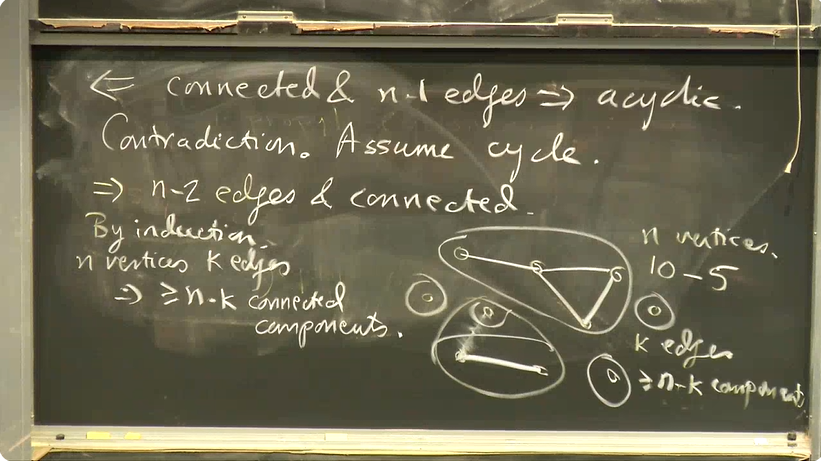 ⇐ connected & n-1 edges ⇒ acyclic.
Contradiction. Assume cycle.
⇒ n-2 edges & connected.
By induction.
n vertices k edges
⇒ ≥ n-k connected
components.
n vertices.
10 - 5
k edges
≥ n-k component